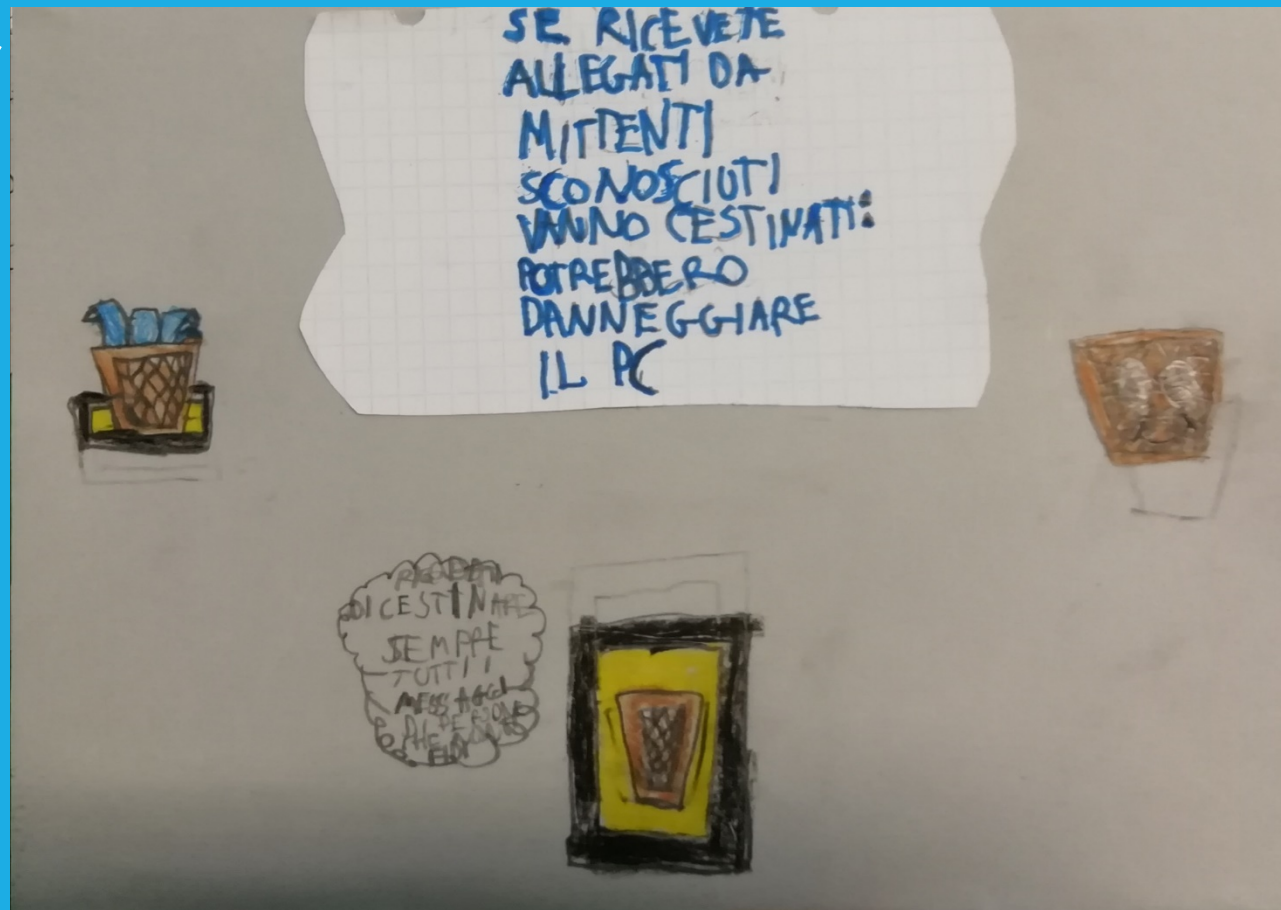 SE RICEVETE
ALLEGATI DA
MITTENTI
SCONOSCIUTI
VANNO CESTINATI:
POTREBBERO
DANNEGGIARE
IL PC
DI CESTINARE
SEMPRE
TUTTI I
MESSAGGI